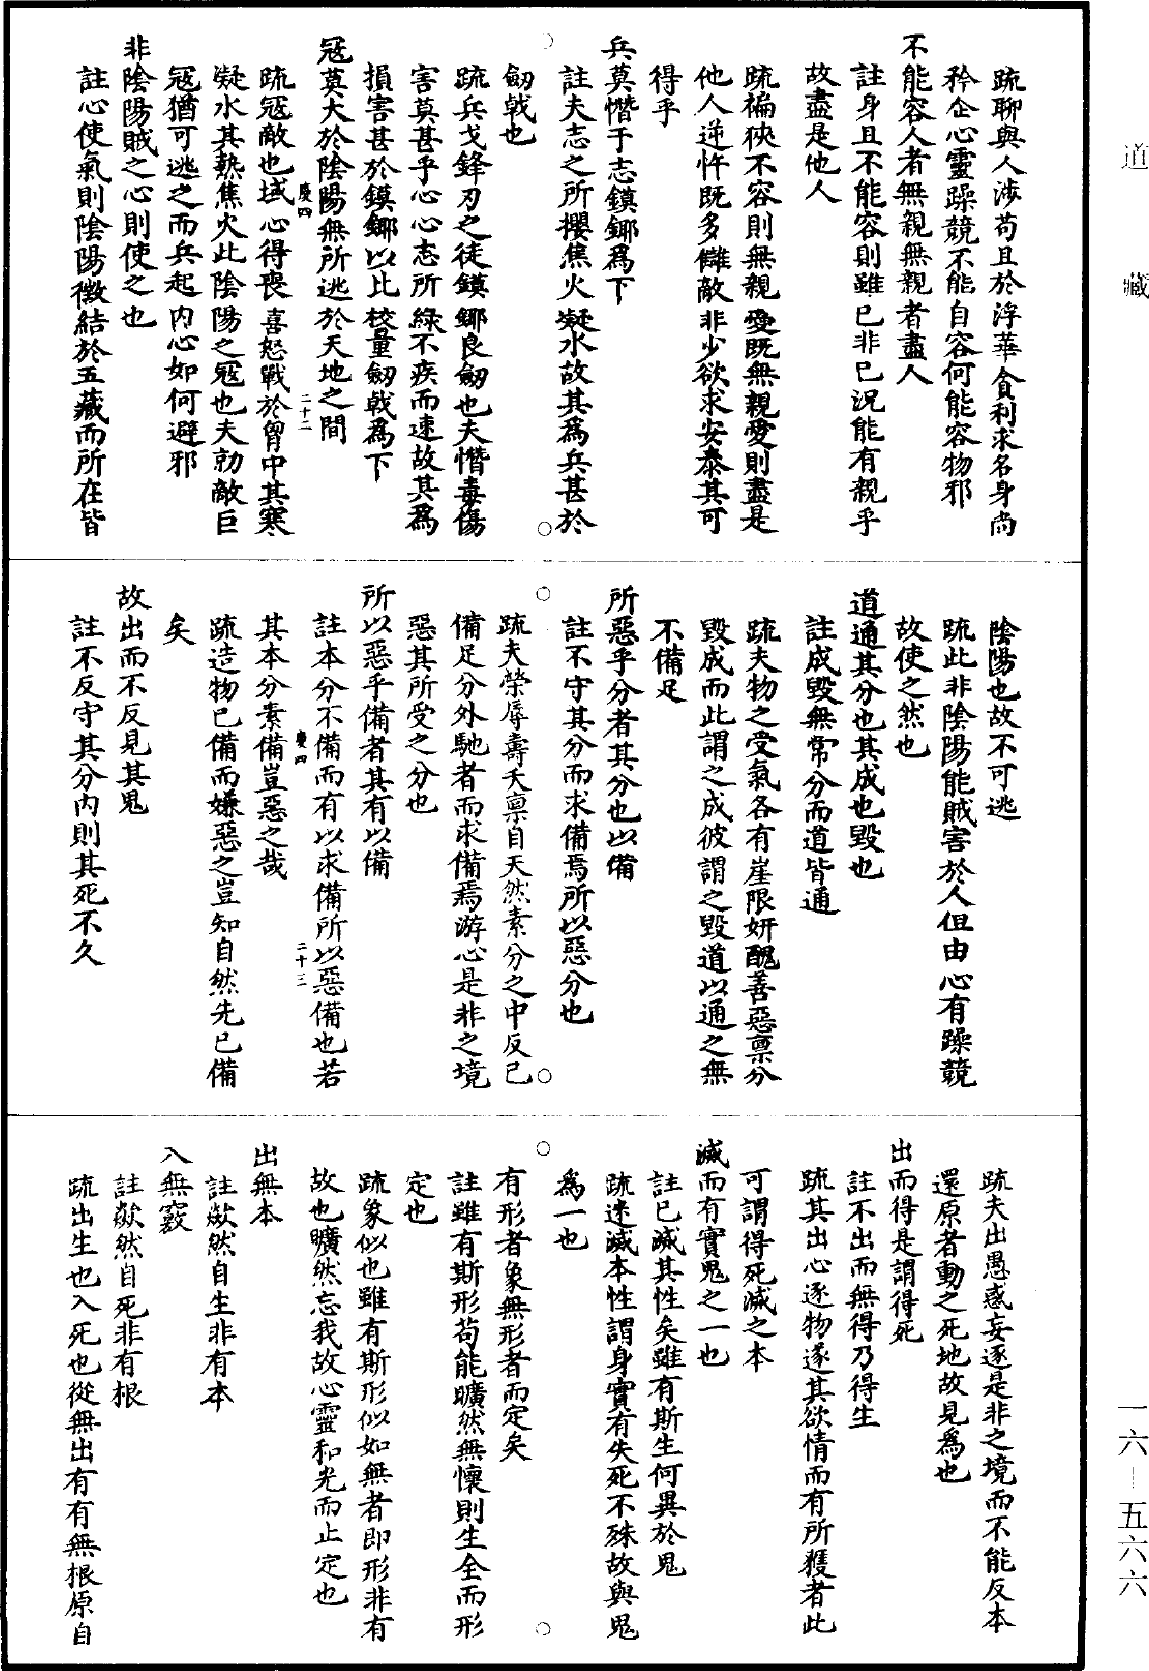 道藏
疏聊與人涉苟且於浮華貪利求名身尚
矜企心靈躁競不能自容何能容物邪
不能容人者無親無親者盡人
註身且不能容則雖已非已況能有親乎
故盡是他人
疏褊狹不容則無親愛既無親愛則盡是
他人逆忤既多讎敵非少欲求安泰其可
得乎
兵莫憯于志鏌鎁爲下
註夫志之所攖焦火凝水故其爲兵甚於
劒戟也
疏兵戈鋒刃之徒鏌鎁良劒也夫憯毒傷
害莫甚乎心心志所緣不疾而速故其爲
損害甚於鏌鎁以比校量劒戟爲下
寇莫大於陰陽無所逃於天地之間
慶四
二十二
疏寇敵也域心得喪喜怒戰於胷中其寒
凝水其熱焦火此陰陽之寇也夫勍敵巨
寇猶可逃之而兵起內心如何避邪
非陰陽賊之心則使之也
註心使氣則陰陽徵結於五藏而所在皆
陰陽也故不可逃
疏此非陰陽能賊害於人但由心有躁競
故使之然也
道通其分也其成也毀也
註成毀無常分而道皆通
疏夫物之受氣各有崖限妍醜善惡禀分
毀成而此謂之成彼謂之毀道以通之無
不備足
所惡乎分者其分也以備
註不守其分而求備焉所以惡分也
疏夫榮辱壽夭禀自天然素分之中反已
備足分外馳者而求備焉游心是非之境
惡其所受之分也
所以惡乎備者其有以備
註本分不備而有以求備所以惡備也若
慶四
二十三
其本分素備豈惡之哉
疏造物已備而嫌惡之豈知自然先已備
矣
故出而不反見其鬼
註不反守其分內則其死不久
疏夫出愚惑妄逐是非之境而不能反本
還原者動之死地故見爲也
出而得是謂得死
註不出而無得乃得生
疏其出心逐物遂其欲情而有所獲者此
可謂得死滅之本
滅而有實鬼之一也
註已滅其性矣雖有斯生何異於鬼
疏迷滅本性謂身實有失死不殊故與鬼
爲一也
有形者象無形者而定矣
註雖有斯形苟能曠然無懷則生全而形
定也
疏象似也雖有斯形似如無者即形非有
故也曠然忘我故心靈和光而止定也
出無本
註歘然自生非有本
入無竅
註歘然自死非有根
疏出生也入死也從無出有有無根原自
一六—五六六